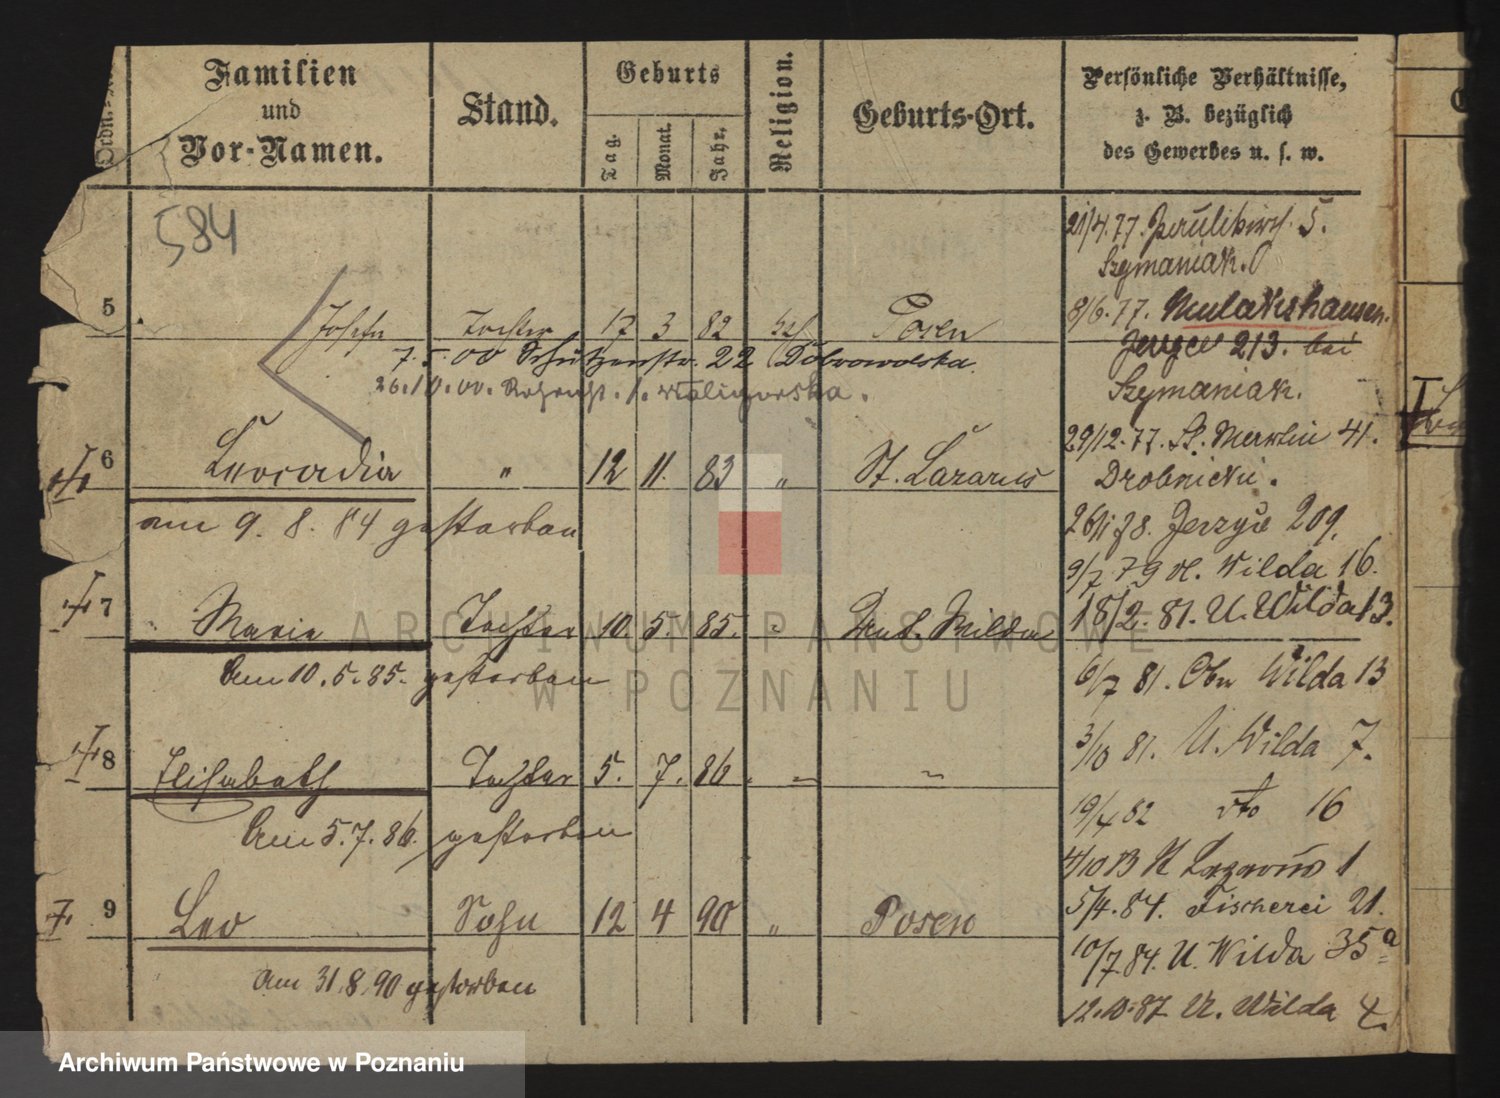 Ordn.
Familien
und
Vor-Namen.
Stand.
Geburts
Tag.
Monat.
Jahr.
Religion.
Geburts-Ort.
Persönliche Verhältnisse,
z. B. bezüglich
des Gewerbes u. s. w.
584
5 Josefa Tochter 17 3 82 Posen
7. 5. 00 Schützenstr. 22 Dobrowolska
26. 10. 00. 1. Waligorska.
6 Leocadia " 12 11. 83 " St. Lazarus
am 9. 8. 84 gestorben
7 Marie Tochter 10. 5. 85. " Unt. Wilda
Am 10. 5. 85. gestorben
8 Elisabeth Tochter 5. 7. 86 " "
Am 5. 7. 86. gestorben
9 Leo Sohn 12 4 90 " Posen
am 31. 8. 90 gestorben
21/4. 77. Paulikirch. 5.
Szymaniak.
8/6. 77.
Jerzyce 213. bei
Szymaniak.
29/12. 77. St. Martin 41.
Drobnicki.
26/1 78. Jerzyce 209.
9/7 79 U. Wilda 16.
18/2. 81. U. Wilda 13.
6/7 81. Obr Wilda 13
3/10 81. U. Wilda 7.
19/4 82 dto 16
4/10 83 St Lazarus 1
5/4. 84. Fischerei 21.
10/7. 84. U. Wilda 35a
12. 10. 87 U. Wilda 4.
ARCHIWUM PAŃSTWOWE
W POZNANIU
Archiwum Państwowe w Poznaniu